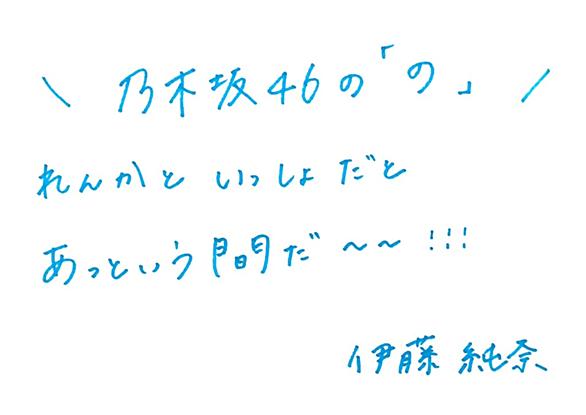 ＼ 乃木坂46の「の」 ／
れんかと いっしょだと
あっという間だ～～!!!
伊藤純奈